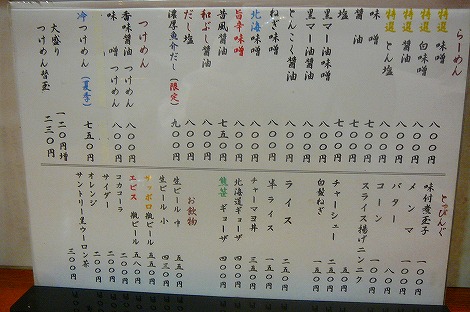 らーめん
特選 味噌 八〇〇円
特選 白味噌 八〇〇円
特選 とん塩 八〇〇円
味噌 八〇〇円
醤油 八〇〇円
塩 八〇〇円
黒マー油醤油 八〇〇円
黒マー油 八〇〇円
とんこく醤油 八〇〇円
ねぎ味噌
北海味噌 八〇〇円
旨辛味噌 八〇〇円
昔風醤油 七五〇円
和ぶし醤油 八〇〇円
だし塩 八〇〇円
濃厚魚介だし(限定) 九〇〇円
つけめん
香味醤油つけめん 八〇〇円
味噌つけめん 八〇〇円
冷つけめん(夏季) 七五〇円
大盛り 一二〇円増
つけめん替玉 二三〇円
とっぴんぐ
味付煮玉子 一〇〇円
メンマ 一〇〇円
バター 八〇円
コーン 一〇〇円
スライス揚げニンニク 一〇〇円
チャーシュー 二五〇円
白髪ねぎ 一五〇円
ライス 二五〇円
半ライス 一五〇円
チャーマヨ丼 三五〇円
北海道ギョーザ 四〇〇円
熊笹ギョーザ 四〇〇円
お飲物
生ビール 中 五五〇円
生ビール 小 四三〇円
サッポロ 瓶ビール 五五〇円
エビス 瓶ビール 五八〇円
コカコーラ
サイダー
オレンジ 二〇〇円
サントリー黒ウーロン茶 三〇〇円